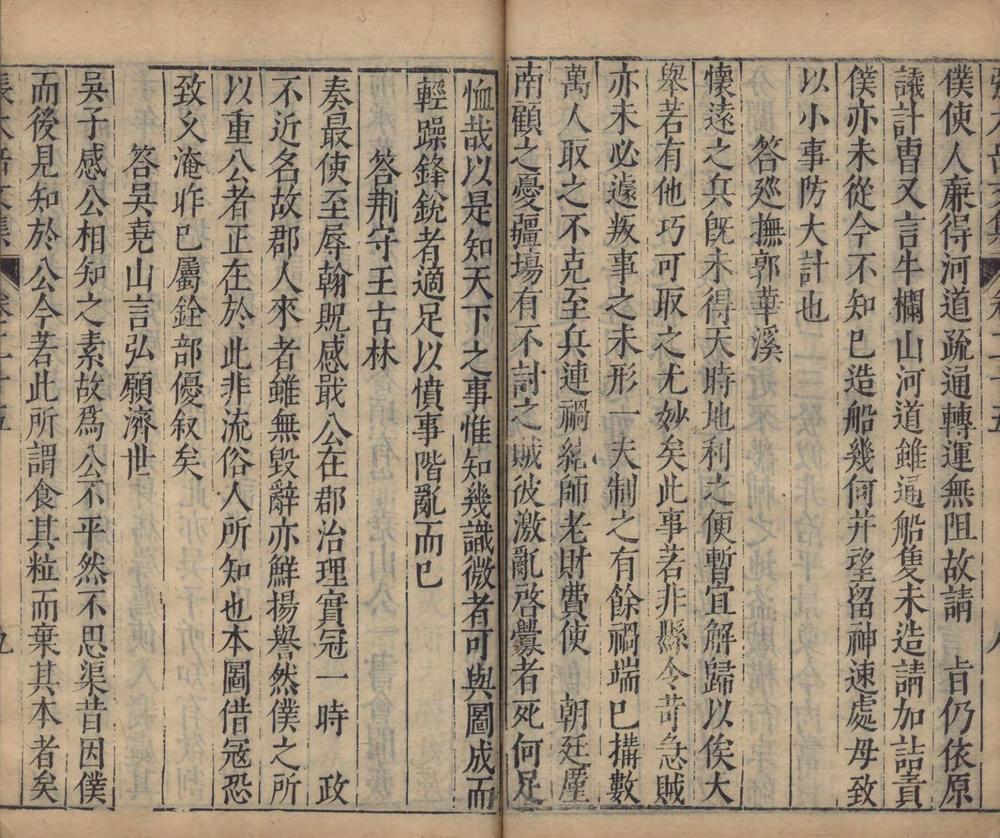 僕使人廉得河道疏通轉運無阻故請　旨仍依原
議計曹又言牛欄山河道雖通船隻未造請加詰責
僕亦未從今不知已造船幾何并望留神速處毋致
以小事防大計也
答巡撫郭華溪
懷遠之兵旣未得天時地利之便暫宜解歸以俟大
舉若有他巧可取之尤妙矣此事若非縣令苛急賊
亦未必遽叛事之未形一夫制之有餘禍端已搆數
萬人取之不克至兵連禍結師老財費使　朝廷廑
南顧之憂疆埸有不討之賊彼激亂啓釁者死何足
恤哉以是知天下之事惟知幾識微者可與圖成而
輕躁鋒銳者適足以僨事階亂而已
答荆守王古林
奏最使至辱翰貺感戢公在郡治理實冠一時　政
不近名故郡人來者雖無毀辭亦鮮揚譽然僕之所
以重公者正在於此非流俗人所知也本圖借宼恐
致乂淹昨已屬銓部優叙矣
答吳堯山言弘願濟世
吳子感公相知之素故爲公不平然不思渠昔因僕
而後見知於公今若此所謂食其粒而棄其本者矣